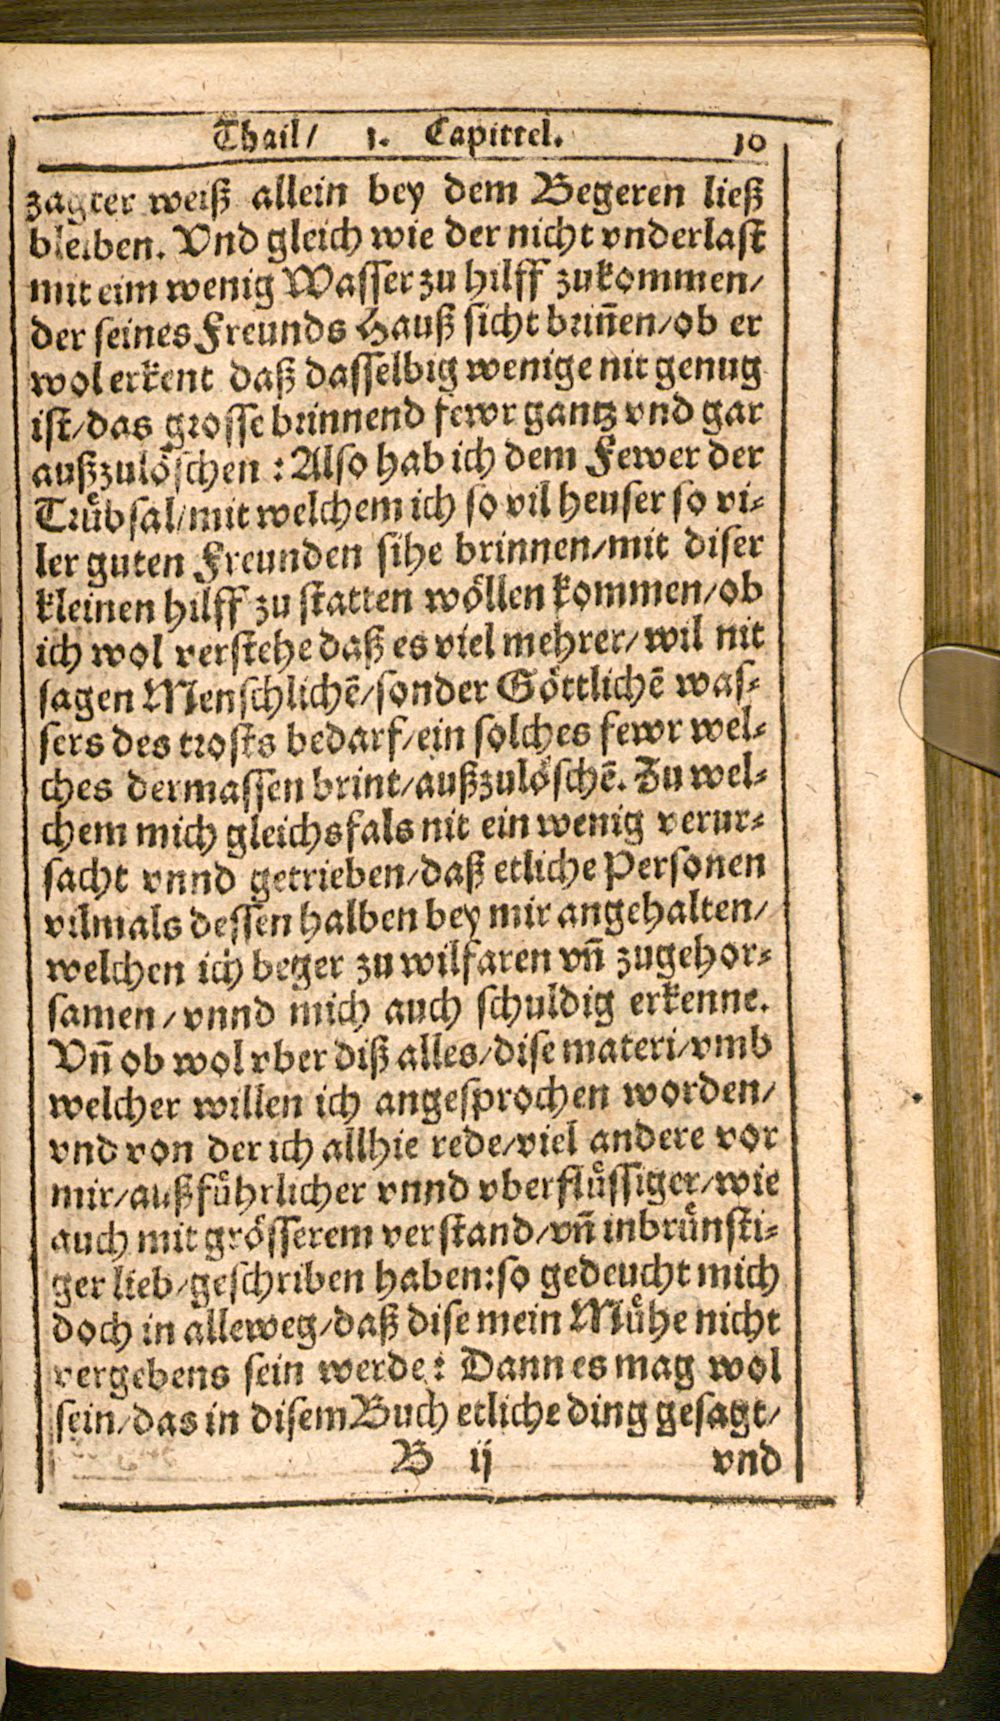 Thail/ 1. Capittel. 10
zagter weiß allein bey dem Begeren ließ
bleiben. Vnd gleich wie der nicht vnderlast
mit eim wenig Wasser zu hilff zukommen/
der seines Freunds Hauß sicht brin̄en/ob er
wol erkent daß dasselbig wenige nit genug
ist/das grosse brinnend fewr gantz vnd gar
außzulöschen : Also hab ich dem Fewer der
Trübsal/mit welchem ich so vil heuser so vi-
ler guten Freunden sihe brinnen/mit diser
kleinen hilff zu statten wöllen kommen/ob
ich wol verstehe daß es viel mehrer/wil nit
sagen Menschlichē/sonder Göttlichē was-
sers des trosts bedarf/ein solches fewr wel-
ches dermassen brint/außzulöschē. Zu wel-
chem mich gleichsfals nit ein wenig verur-
sacht vnnd getrieben/daß etliche Personen
vilmals dessen halben bey mir angehalten/
welchen ich beger zu wilfaren vn̄ zugehor-
samen/vnnd mich auch schuldig erkenne.
Vn̄ ob wol vber diß alles/dise materi/vmb
welcher willen ich angesprochen worden/
vnd von der ich allhie rede/viel andere vor
mir/außführlicher vnnd vberflüssiger/wie
auch mit grösserem verstand/vn̄ inbrünsti-
ger lieb/geschriben haben:so gedeucht mich
doch in alleweg/daß dise mein Mühe nicht
vergebens sein werde: Dann es mag wol
sein/das in disem Buch etliche ding gesagt/
B ij vnd